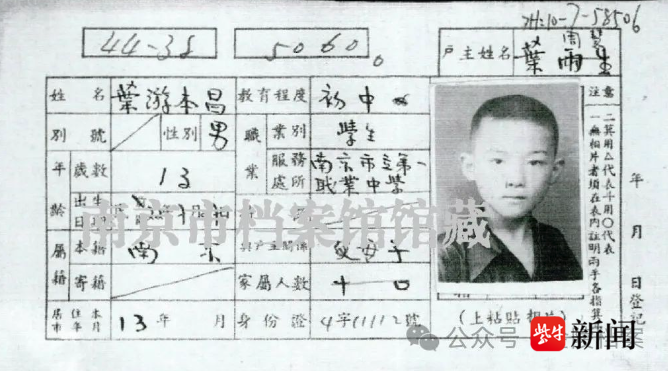 ZH:10-7-58506
44-38 5060。
戶主姓名 葉雨生
姓名 葉游本昌 教育程度 初中
別號 性別 男 職業 業別 學生
年齡 歲數 13 服務處所 南京市立第一職業中學
出生日期
屬籍 本籍 南京 與戶主關係 父子
寄籍 家屬人數 十口
居住本市年月 13年 月 身份證 4字11112號
注意
一無相片者須在表內註明兩手各指箕斗
二箕用△代表斗用○代表
年 月 日登記
(上粘貼相片)
南京市档案馆馆藏
公众号
紫牛新闻